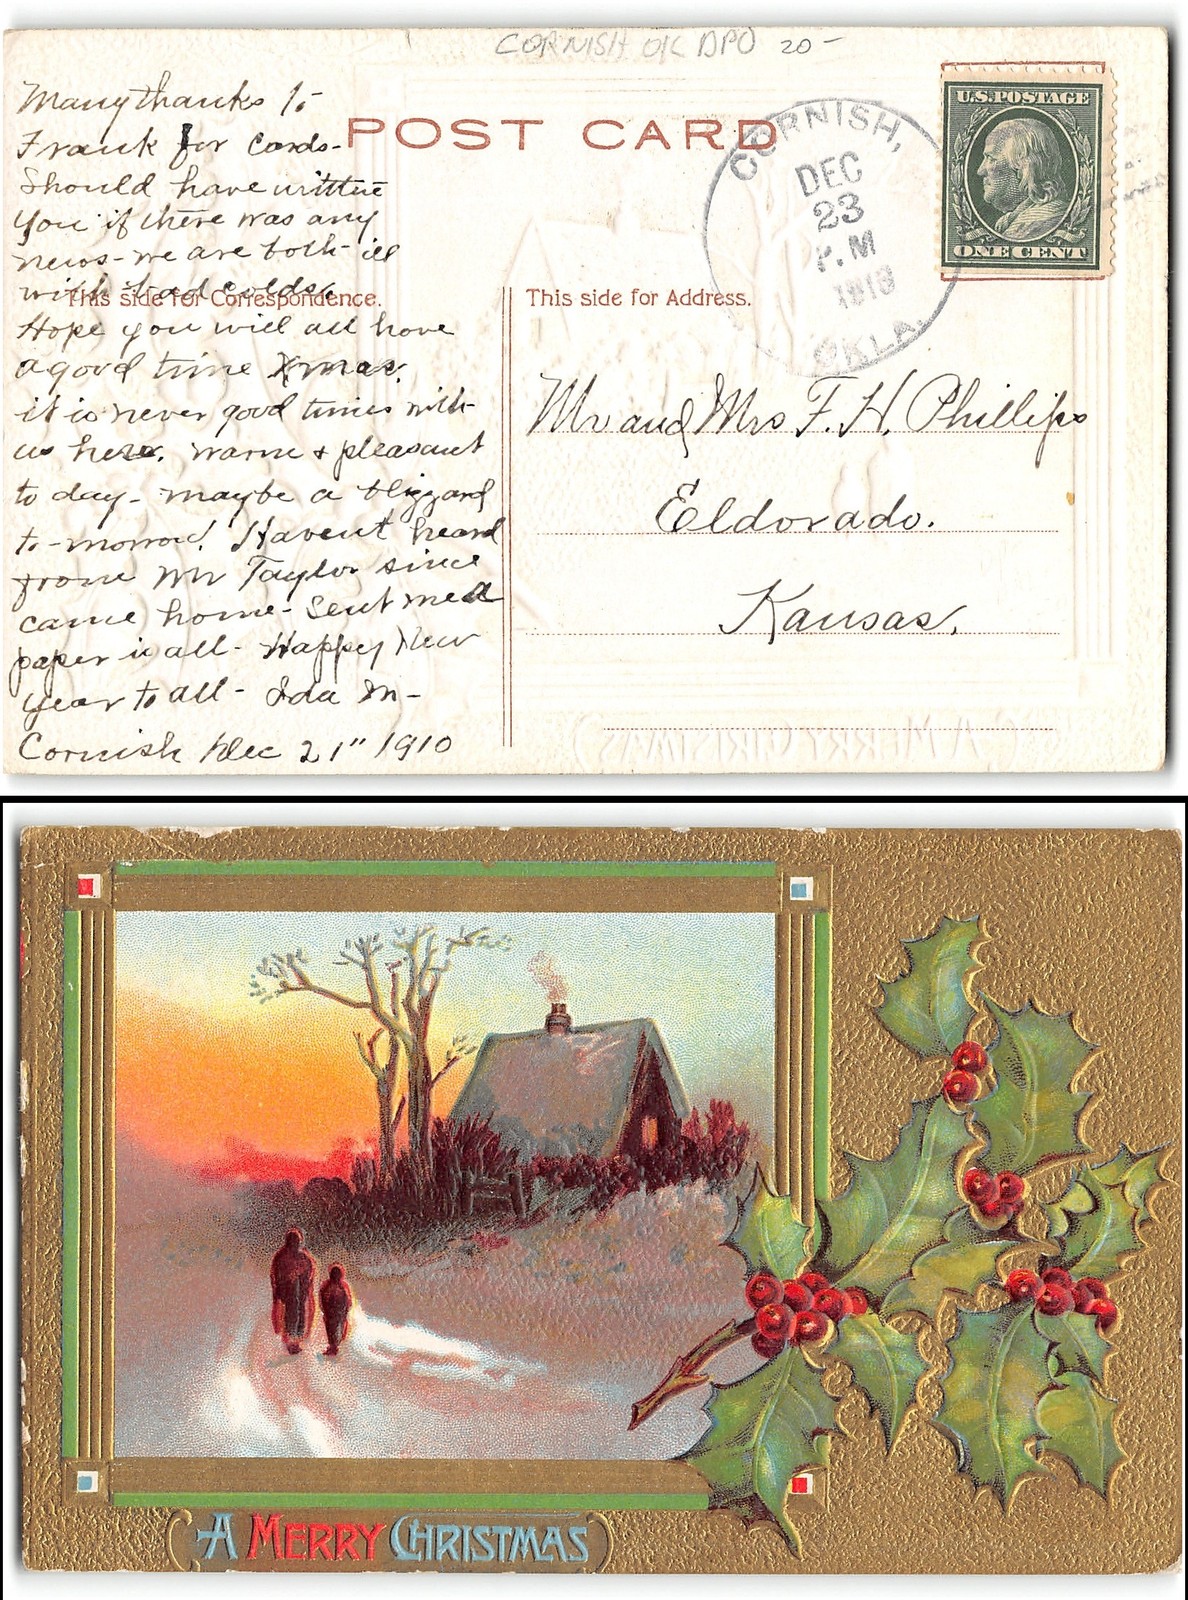 CORNISH OK DPO 20-
Many thanks to
Frank for Cards-
Should have written
you if there was any
news- we are both ill
with bad colds.
Hope you will all have
a good time Xmas.
it is never good times with
us here. warm & pleasant
to day- maybe a blizzard
to-morrow! Havent heard
from Mr Taylor since
came home- Sent me a
paper is all- Happy New
year to all- Ida M-
Cornish Dec 21" 1910
POST CARD
This side for Correspondence.
This side for Address.
CORNISH,
DEC
23
P.M
OKLA.
U.S.POSTAGE
ONE CENT
Mr and Mrs F. H. Phillips
Eldorado.
Kansas.
A MERRY CHRISTMAS